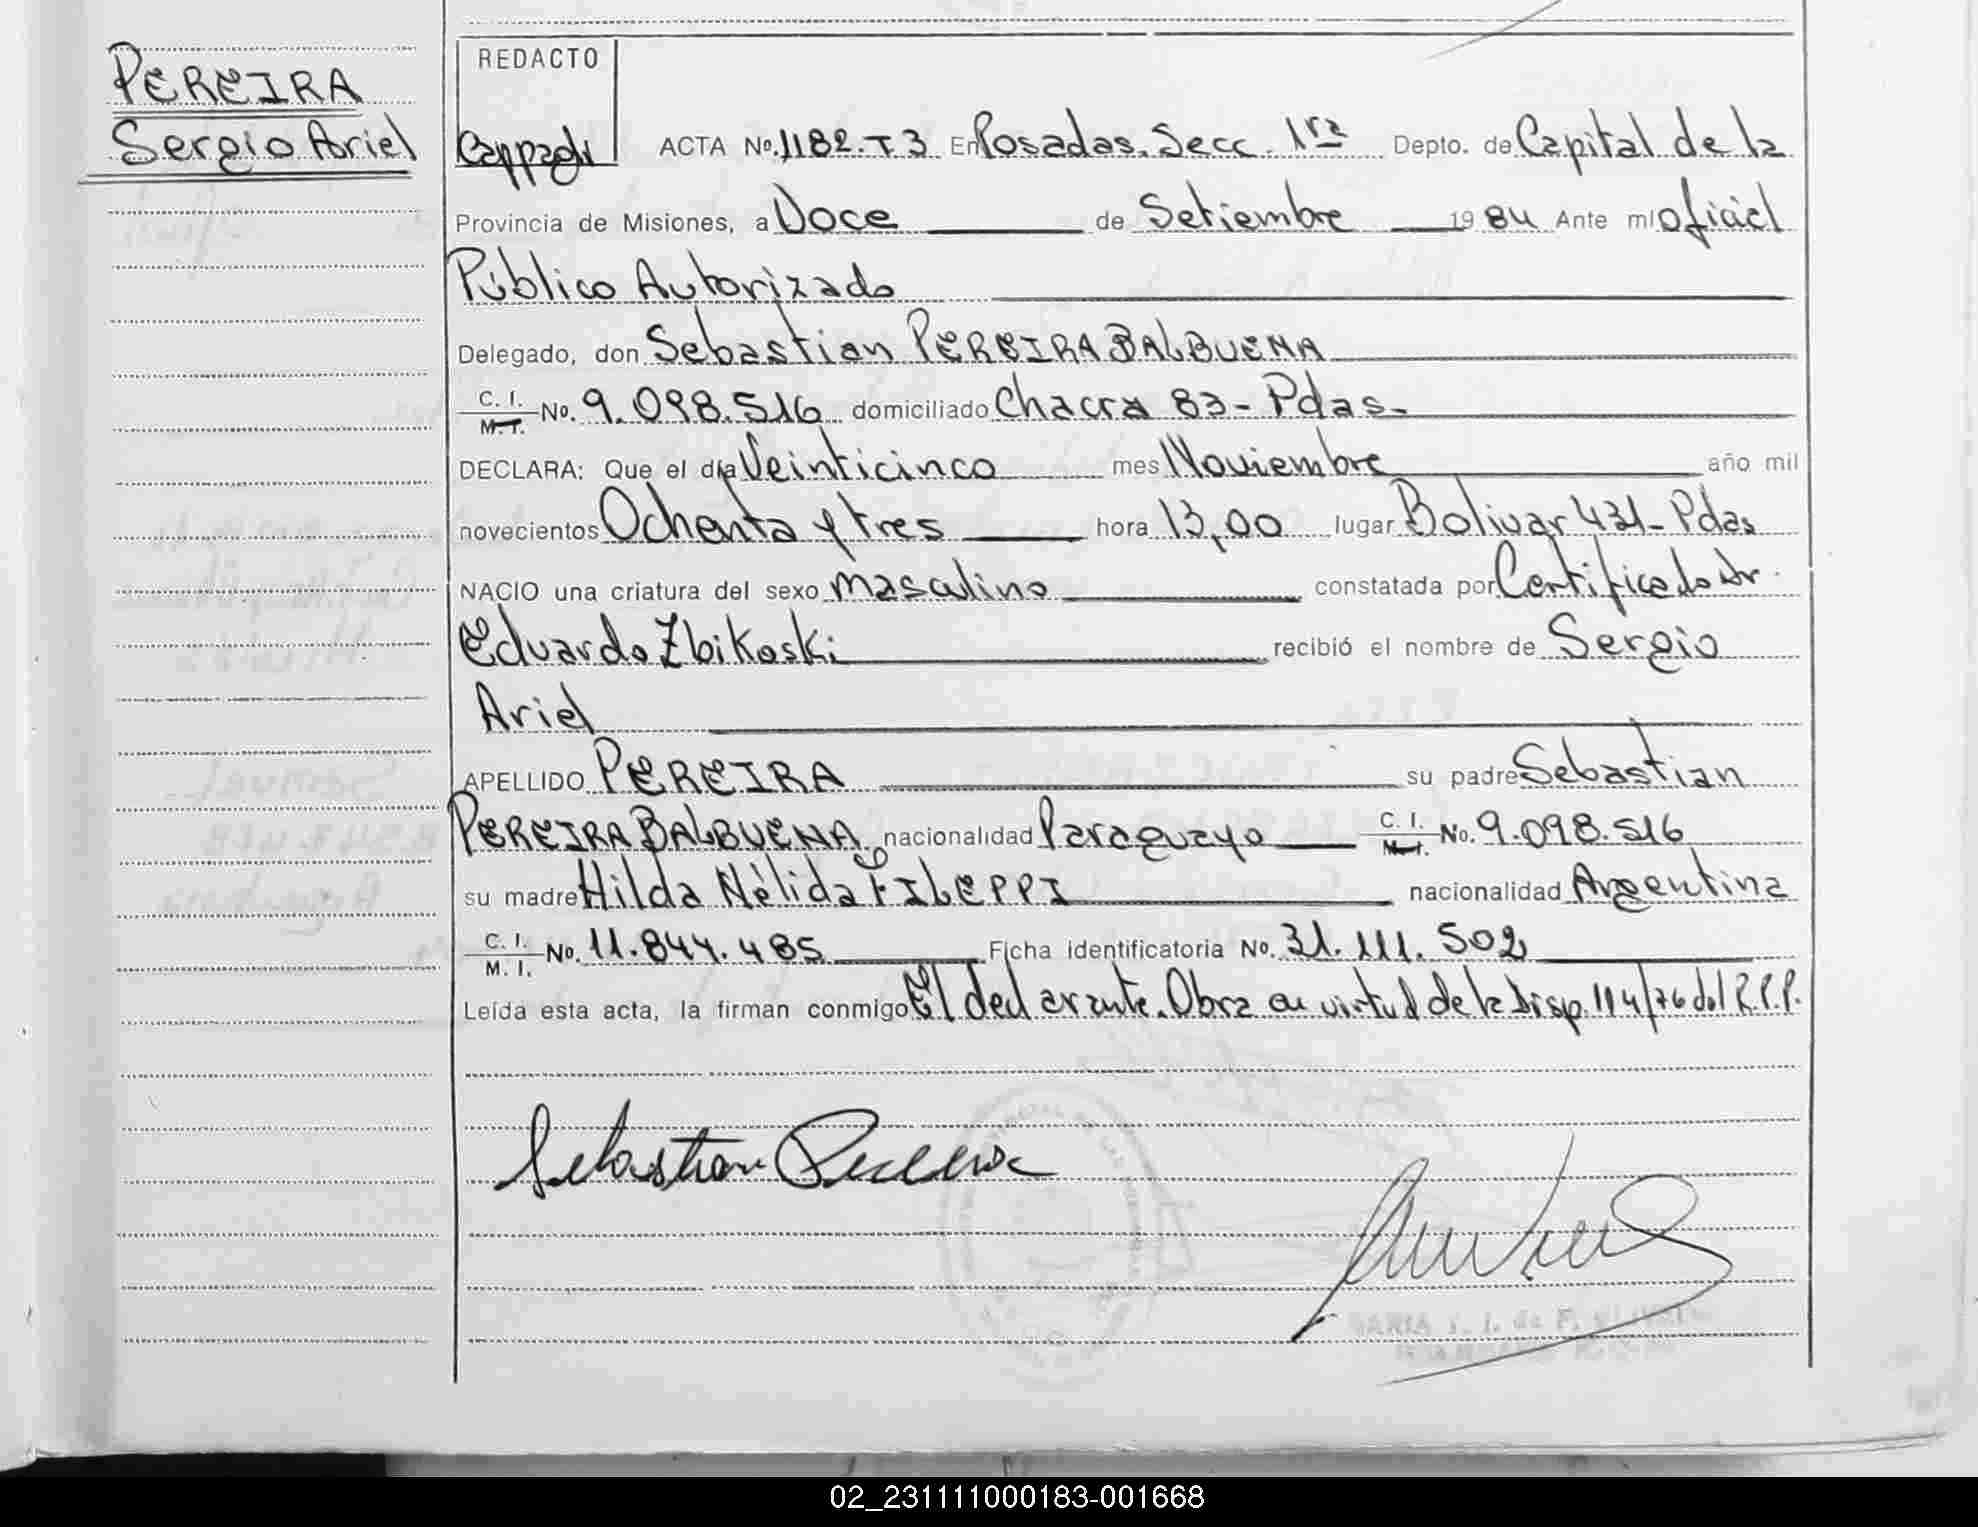 PEREIRA
Sergio Ariel
REDACTO
ACTA No. 1182.T3 En Posadas. Secc. 1ra Depto. de Capital de la
Provincia de Misiones, a Doce de Setiembre 1984 Ante mí oficial
Público Autorizado
Delegado, don Sebastian PEREIRA BALBUENA
C. I. M. I. No. 9.098.516 domiciliado Chacra 83 - Pdas -
DECLARA: Que el día Veinticinco mes Noviembre año mil
novecientos Ochenta y tres hora 13,00 lugar Bolivar 431 - Pdas
NACIO una criatura del sexo masculino constatada por Certificado Dr.
Eduardo Zbikoski recibió el nombre de Sergio
Ariel
APELLIDO PEREIRA su padre Sebastian
PEREIRA BALBUENA nacionalidad Paraguayo C. I. M. I. No. 9.098.516
su madre Hilda Nélida FILEPPI nacionalidad Argentina
C. I. M. I. No. 11.844.485 Ficha identificatoria No. 31.111.502
Leída esta acta, la firman conmigo El declarante. Obra en virtud de la Disp. 114/76 del R.P.P.
Sebastian Pereira
02_231111000183-001668